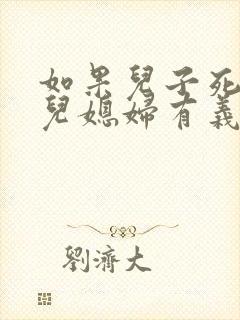 如果兒子死
兒媳婦有義
劉濟大